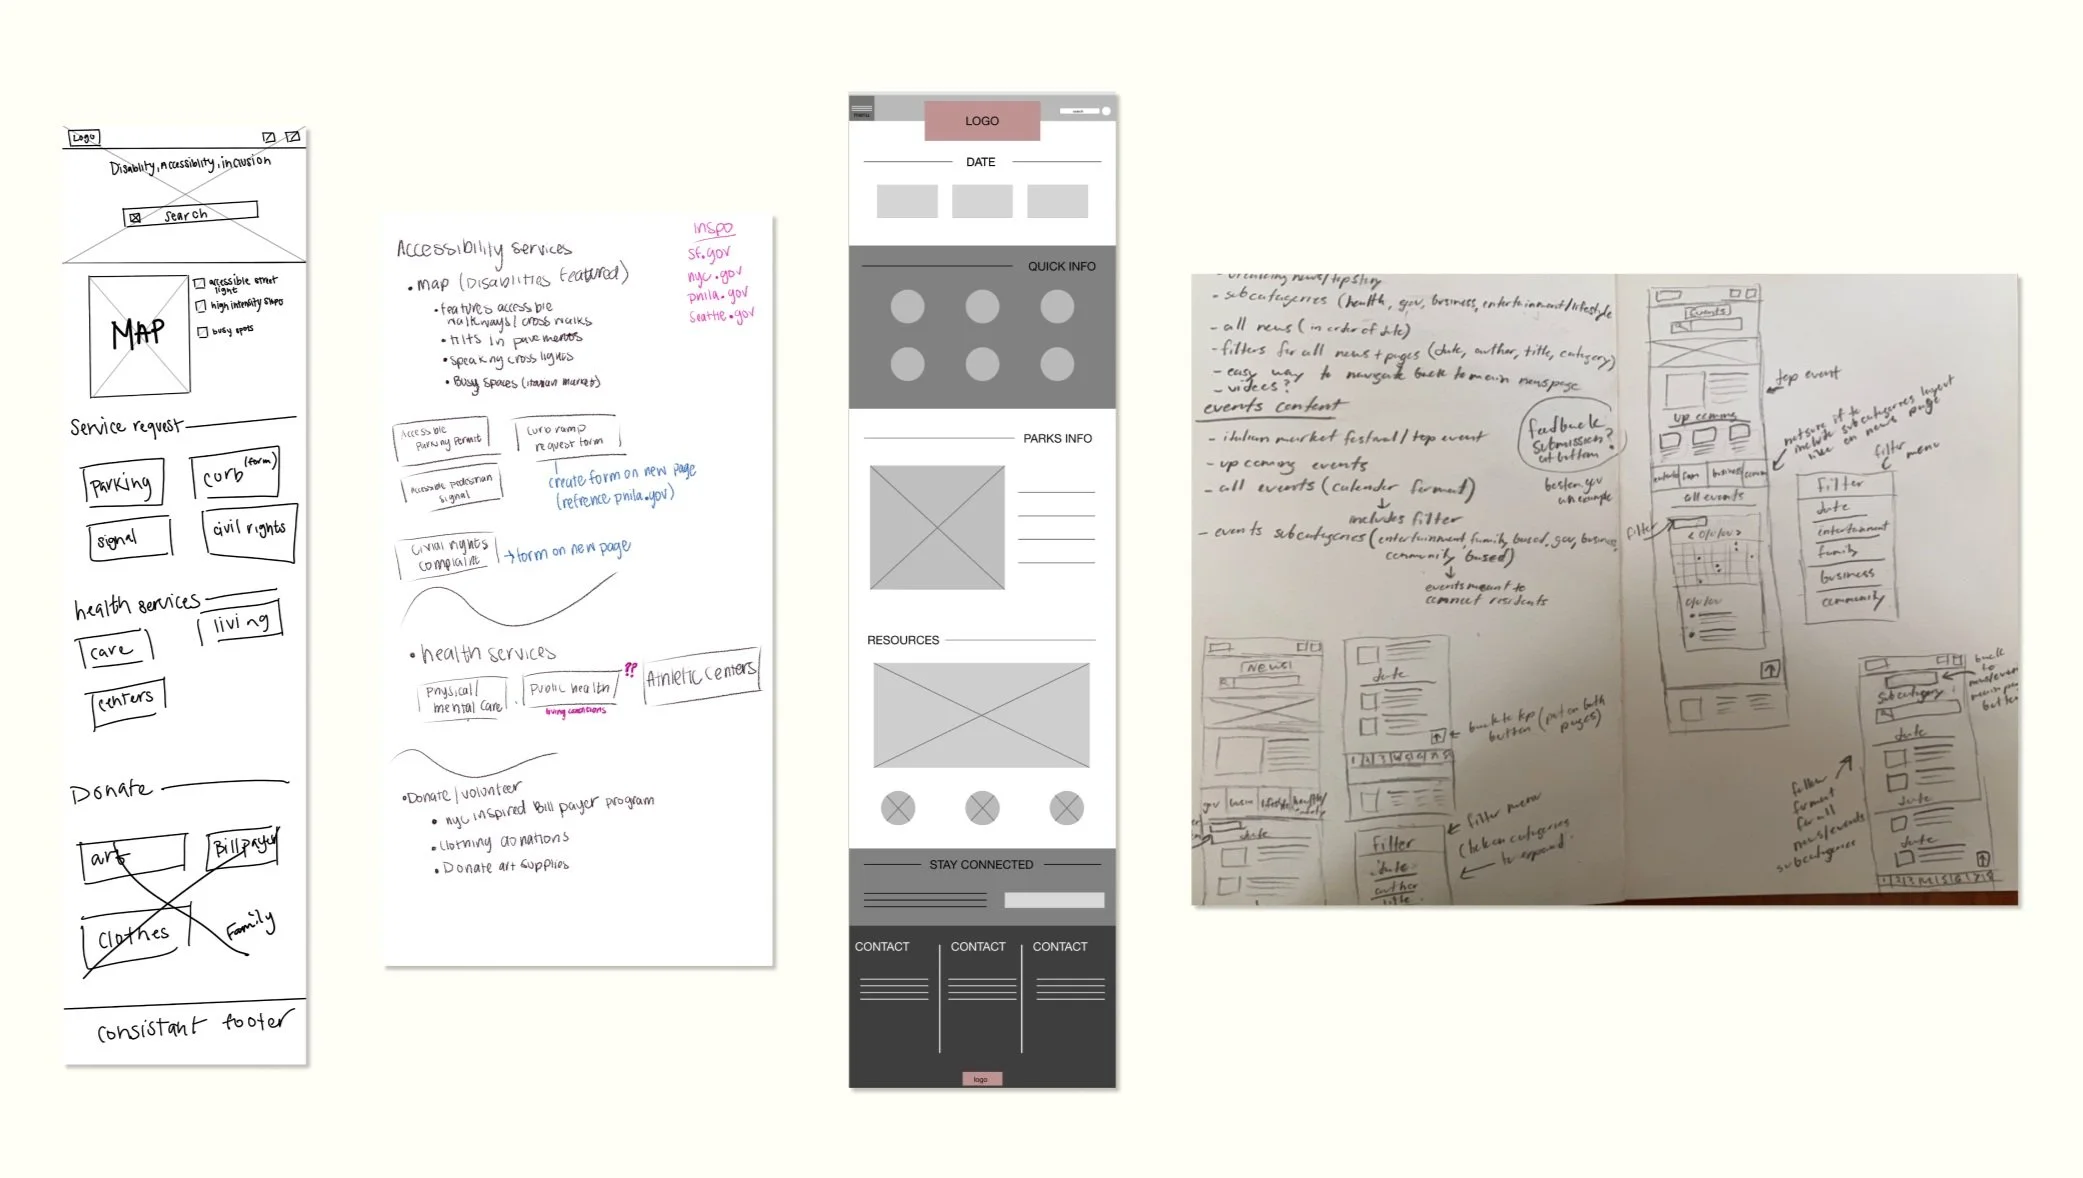 Logo
Disablity, Accessiblity, inclusion
Search
MAP
accessible street
light
high intensity stops
busy spots
Service request
parking
curb (form)
signal
civil rights
health services
care
living
centers
Donate
art
Billpayer
clothes
Family
consistant footer
Accessibility services
inspo
sf.gov
nyc.gov
phila.gov
Seattle.gov
• map (Disabilities featured)
• features accessible
walkways/ cross walks
• tilts in pavements
• speaking cross lights
• Busy spaces (italian market)
Accessible
Parking Permit
curb ramp
request form
Accessible pedestrian
signal
create form on new page
(refrence phila.gov)
civial rights
complaint
→ form on new page
• health services
physical/
mental care
public health/
living conditions
??
Athletic Centers
• Donate/volunteer
• nyc inspired Bill payer program
• clothing donations
• Donate art supplies
menu
LOGO
search
DATE
QUICK INFO
PARKS INFO
RESOURCES
STAY CONNECTED
CONTACT
CONTACT
CONTACT
logo
news/top story
- subcatagories (health, gov, business, entertainment/lifestyle
- all news (in order of date)
- filters for all news + pages (date, author, title, category)
- easy way to navigate back to main news page
- videos?
events content
- italian market festival/top event
- up coming events
- all events (calender format)
includes filter
- events subcategories (entertainment, family based, gov, business,
community based)
events meant to
connect residents
feedback
submission?
at bottom
boston.gov
an example
events
top event
up coming
not sure if to
include subcategories layout
like on news page
fam
business
comm
all events
filter
0/0/00
0/0/00
filter
menu
Filter
date
entertainment
family
business
community
NEWS!
gov
lifestyle
date
date
back to top
button (put on both
pages)
filter menu
Click on categories
to expand
Filter
date
author
title
back
to
news/event
main page
button
subcategory
date
date
date
follow
format
for all
news/events
subcategories